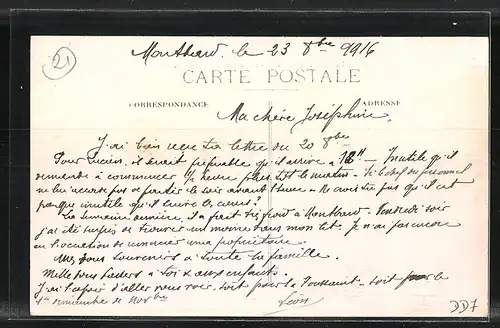 21
Montbard, le 23 8bre 1916
CARTE POSTALE
CORRESPONDANCE
ADRESSE
Ma chère Joséphine,
J'ai bien reçu ta lettre du 20 8bre
Pour Lucien, il serait préférable qu'il arrive à 18h — Inutile qu'il
demande à commencer 1 heure plus tôt le matin — Si le chef du personnel
ne lui accorde pas de partir le soir avant l'heure — Ne crois-tu pas qu'il est
presque inutile qu'il
La semaine dernière, il a fait très froid à Montbard. Vendredi soir
j'ai été surpris de trouver un moine dans mon lit. Je n'ai pas encore
eu l'occasion de remercier ma propriétaire.
Mes bons souvenirs à toute la famille.
Mille bons baisers à toi & aux enfants.
J'ai l'espoir d'aller vous voir, soit pour la Toussaint — soit pour le
1er dimanche de Novbre
Léon
DD7